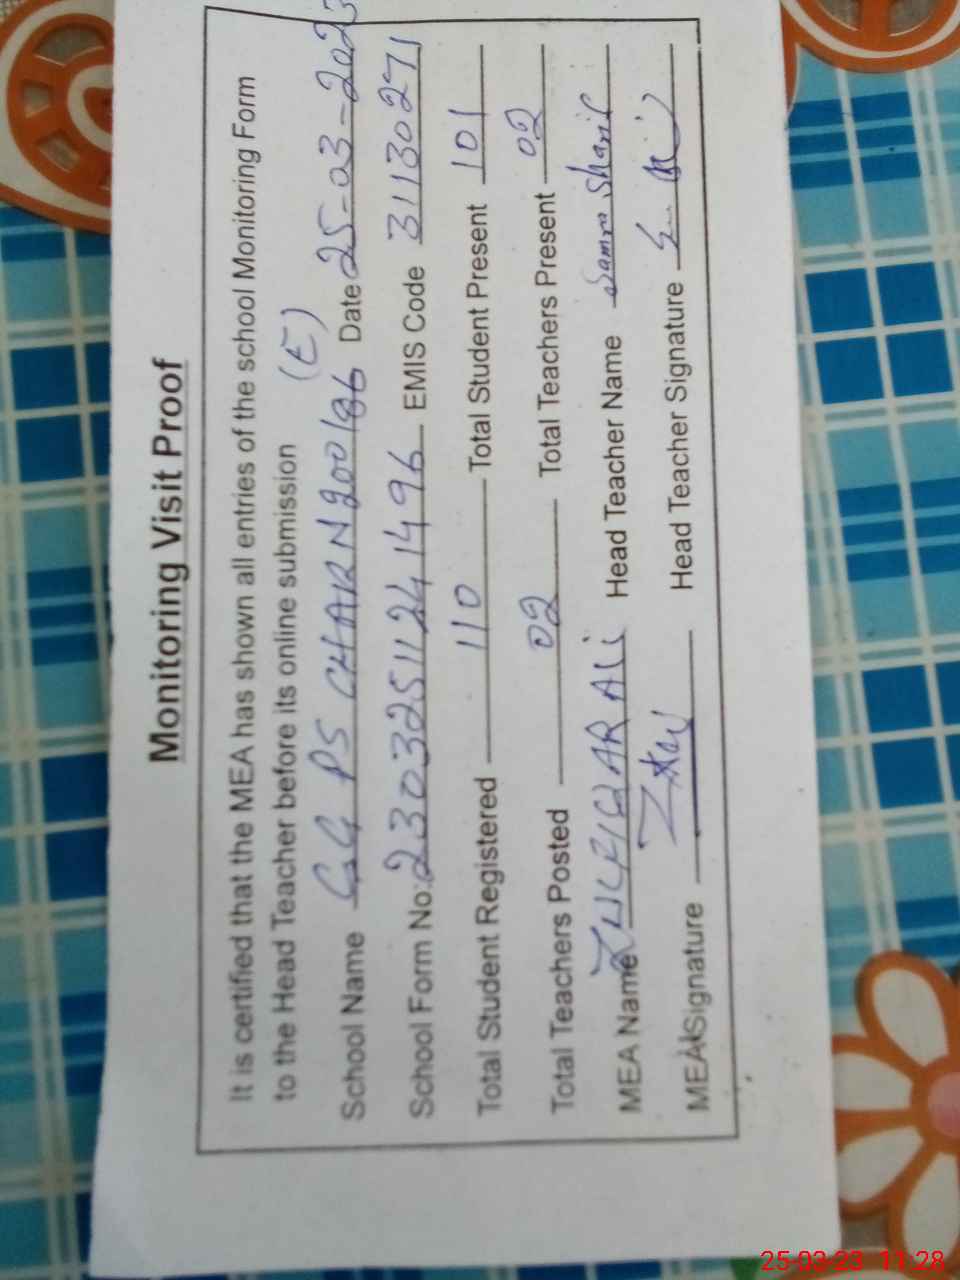 Monitoring Visit Proof
It is certified that the MEA has shown all entries of the school Monitoring Form
to the Head Teacher before its online submission
School Name GG PS CHAK N200/86 (E) Date 25-03-2023
School Form No: 23032511241496 EMIS Code 31130271
Total Student Registered 110 Total Student Present 101
Total Teachers Posted 02 Total Teachers Present 02
MEA Name ZULFIQAR Ali Head Teacher Name Samra Sharif
MEA Signature Head Teacher Signature
25-03-23 11:28